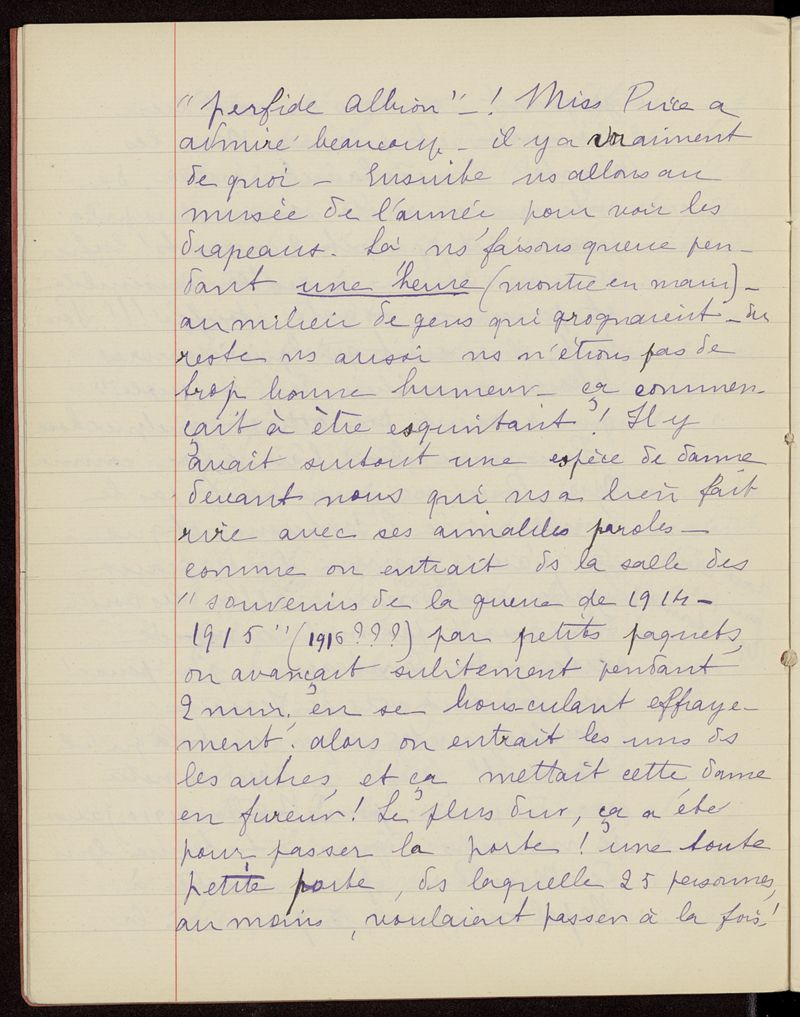 "perfide Albion" – ! Miss Price a
admiré beaucoup – il y a vraiment
de quoi – Ensuite ns allons au
musée de l'armée pour voir les
drapeaux. Là ns faisons queue pen-
dant une heure (montre en main) –
au milieu de gens qui grognaient – du
reste ns aussi ns n'étions pas de
trop bonne humeur – ça commen-
çait à être esquintant ! Il y
avait surtout une espèce de dame
devant nous qui ns a bien fait
rire avec ses aimables paroles –
comme on entrait ds la salle des
"souvenirs de la guerre de 1914-
1915" (1916 ???) par petits paquets,
on avançait subitement pendant
2 min. en se bousculant effraye-
ment. alors on entrait les uns ds
les autres, et ça mettait cette dame
en fureur ! Le plus dur, ça a été
pour passer la porte ! une toute
petite porte, ds laquelle 25 personnes,
au moins, voulaient passer à la fois !